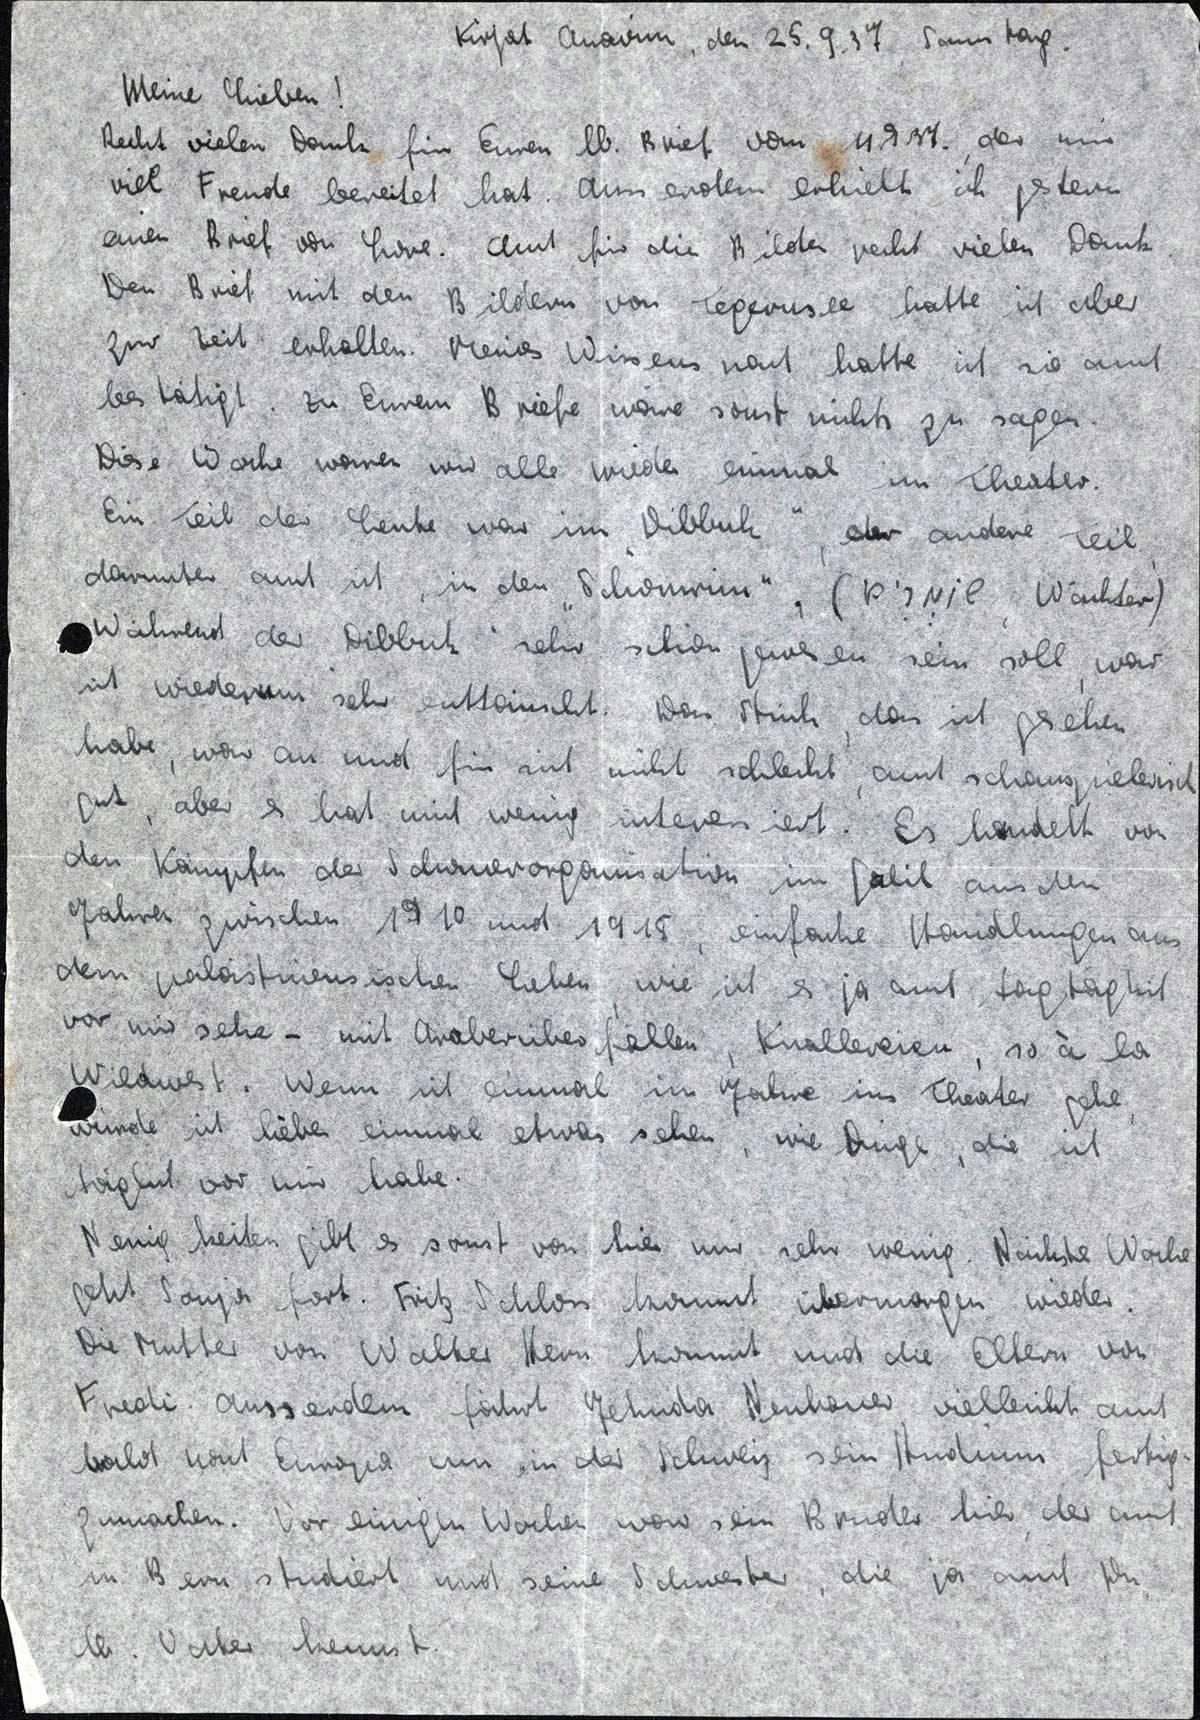 Kirjat Anavim, den 25.9.37 Samstag.
Meine Lieben!
Recht vielen Dank für Euren lb. Brief vom 4.9.37. der mir
viel Freude bereitet hat. Ausserdem erhielt ich gestern
einen Brief von Lore. Auch für die Bilder recht vielen Dank
Den Brief mit den Bildern von Tegernsee hatte ich aber
zur Zeit erhalten. Meines Wissens nach hatte ich sie auch
bestätigt. Zu Eurem Briefe wäre sonst nichts zu sagen.
Diese Woche waren wir alle wieder einmal im Theater.
Ein Teil der Leute war im „Dibbuk", der andere Teil,
darunter auch ich, in den „Schomrim", (שומרים, Wächter)
Während der Dibbuk sehr schön gewesen sein soll, war
ich wiederum sehr enttäuscht. Das Stück, das ich gesehen
habe, war an und für sich nicht schlecht, auch schauspielerisch
gut, aber es hat mich wenig interessiert. Es handelt von
den Kämpfen der Schomerorganisation im Galil aus den
Jahren zwischen 1910 und 1918, einfache Handlungen aus
dem palästinensischen Leben, wie ich es ja auch tagtäglich
vor mir sehe - mit Araberüberfällen, Knallereien, so à la
Wildwest. Wenn ich einmal im Jahre ins Theater gehe,
würde ich lieber einmal etwas sehen, wie Dinge, die ich
täglich vor mir habe.
Neuigkeiten gibt es sonst von hier nur sehr wenig. Nächste Woche
geht Sonja fort. Fritz Schloss kommt übermorgen wieder.
Die Mutter von Walter Kern kommt und die Eltern von
Fredi. Ausserdem fährt Jehuda Neuhauer vielleicht auch
bald nach Europa um in der Schweiz sein Studium fertig-
zumachen. Vor einigen Wochen war sein Bruder hier, der auch
in Bern studiert und seine Schwester, die ja auch Du,
lb. Vater kennst.